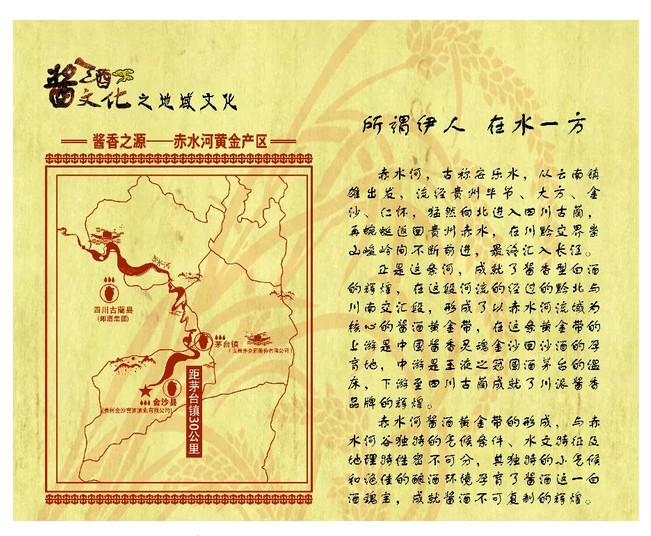 酱酒文化之地域文化
酱香之源——赤水河黄金产区
四川古蔺县
(郎酒集团)
茅台镇
金沙县
距茅台镇30公里
所谓伊人 在水一方
赤水河，古称安乐水，从云南镇
雄出发，流经贵州毕节、大方、金
沙、仁怀，猛然向北进入四川古蔺，
再蜿蜒返回贵州赤水，在川黔交界崇
山峻岭间不断前进，最终汇入长江。
正是这条河，成就了酱香型白酒
的辉煌，在这段河流的经过的黔北与
川南交汇段，形成了以赤水河流域为
核心的酱酒黄金带，在这条黄金带的
上游是中国酱香灵魂金沙回沙酒的孕
育地，中游是玉液之冠国酒茅台的温
床，下游至四川古蔺成就了川派酱香
品牌的辉煌。
赤水河酱酒黄金带的形成，与赤
水河谷独特的气候条件、水文特征及
地理特性密不可分，其独特的小气候
和绝佳的酿酒环境孕育了酱酒这一白
酒瑰宝，成就酱酒不可复制的辉煌。